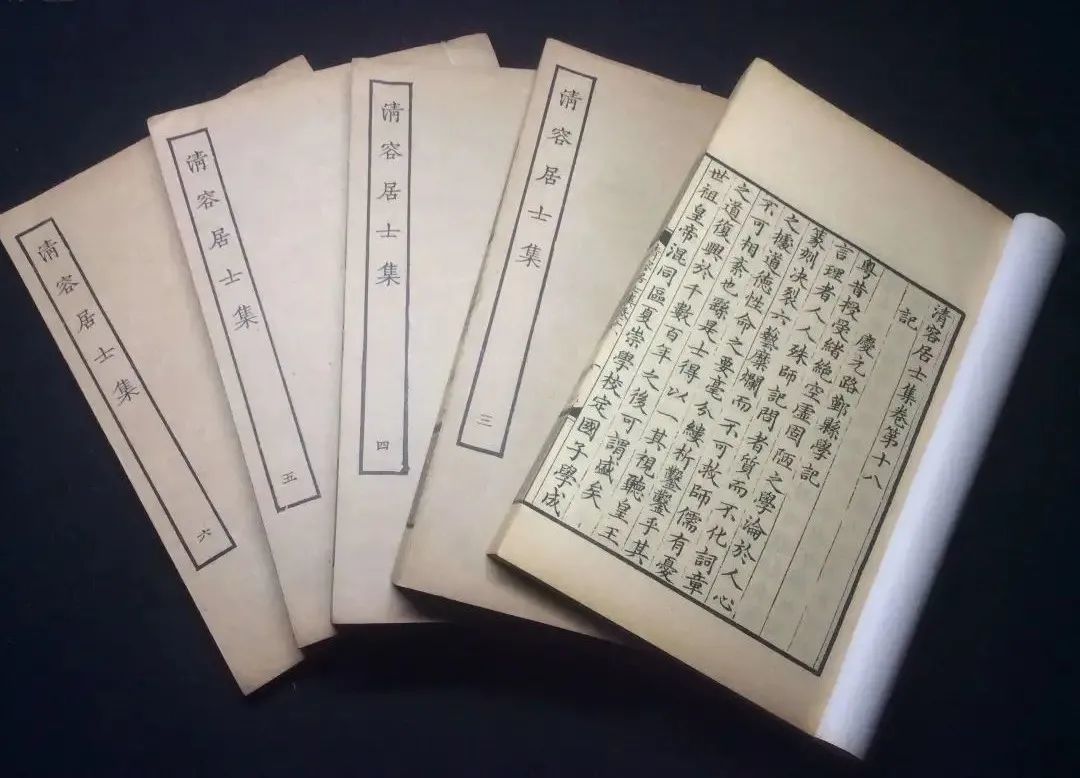 清容居士集卷第十八
記
慶元路鄞縣學記
粤昔授受緒絶空虛固陋之學淪於人心
言理者人人殊師記問者質而不化詞章
篆刻決裂六藝糜爛而不可救師儒有憂
之據道德性命之要毫分縷析鑿鑿乎其
不可相紊也繇是士得以一其視聽皇王
之道復興於千數百年之後可謂盛矣
世祖皇帝混同區夏崇學校定國子學成
清容居士集
三
清容居士集
四
清容居士集
五
清容居士集
六